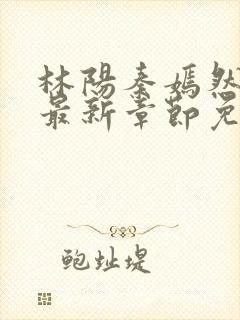 林陽秦嫣然
最新章節免
鲍址堤